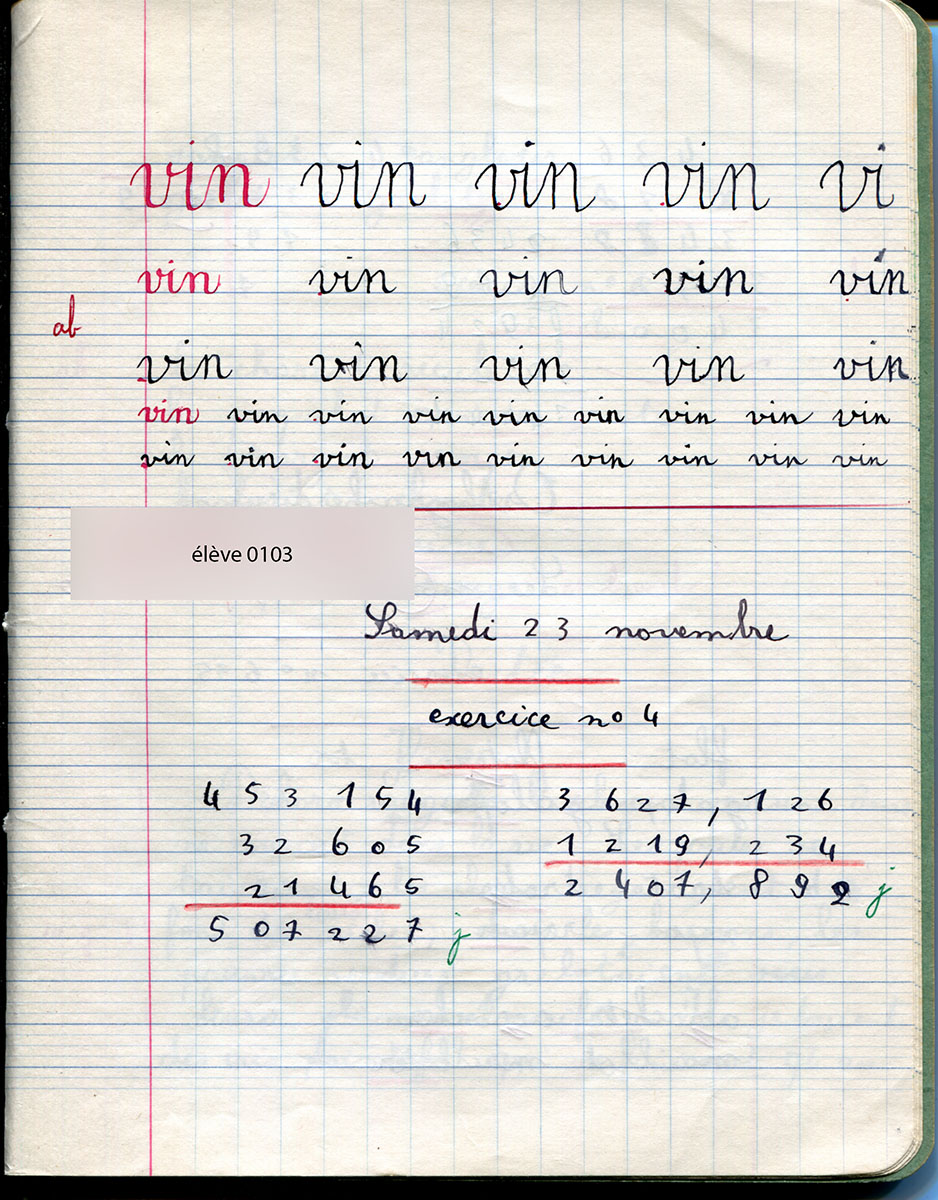 vin vin vin vin vi
vin vin vin vin vin
ab
vin vin vin vin vin
vin vin vin vin vin vin vin vin vin
vin vin vin vin vin vin vin vin vin
élève 0103
Samedi 23 novembre
exercice no 4
453 154 3 627,126
32 605 1 219,234
21 465 2 407,892 j
507 227 j